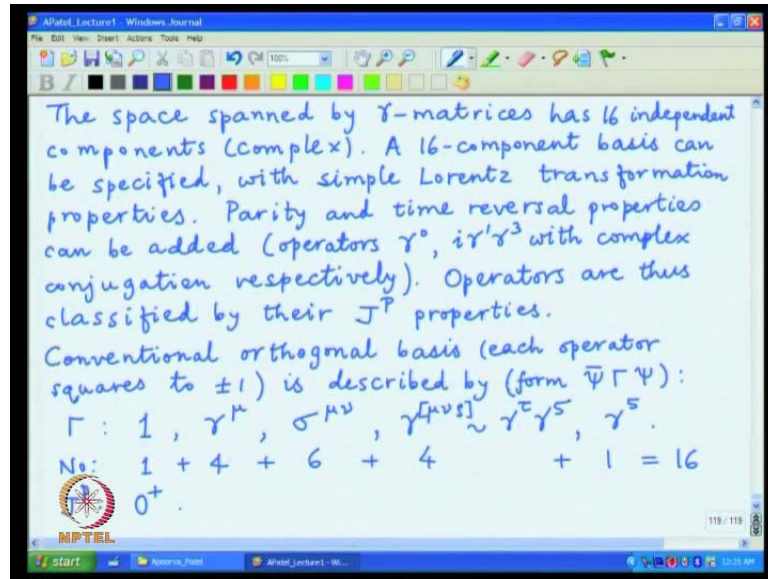 APatel_Lecture1 - Windows Journal
File Edit View Insert Actions Tools Help
100%
B I
The space spanned by γ-matrices has 16 independent
components (complex). A 16-component basis can
be specified, with simple Lorentz transformation
properties. Parity and time reversal properties
can be added (operators γ⁰, iγ¹γ³ with complex
conjugation respectively). Operators are thus
classified by their J^P properties.
Conventional orthogonal basis (each operator
squares to ±1) is described by (form Ψ̄ Γ Ψ) :
Γ : 1 , γ^μ , σ^μν , γ^[μνρ] ~ γ^τ γ^5 , γ^5 .
No: 1 + 4 + 6 + 4 + 1 = 16
0⁺ .
NPTEL
119 / 119
start Apoorva_Patel APatel_Lecture1 - Wi... 12:25 AM